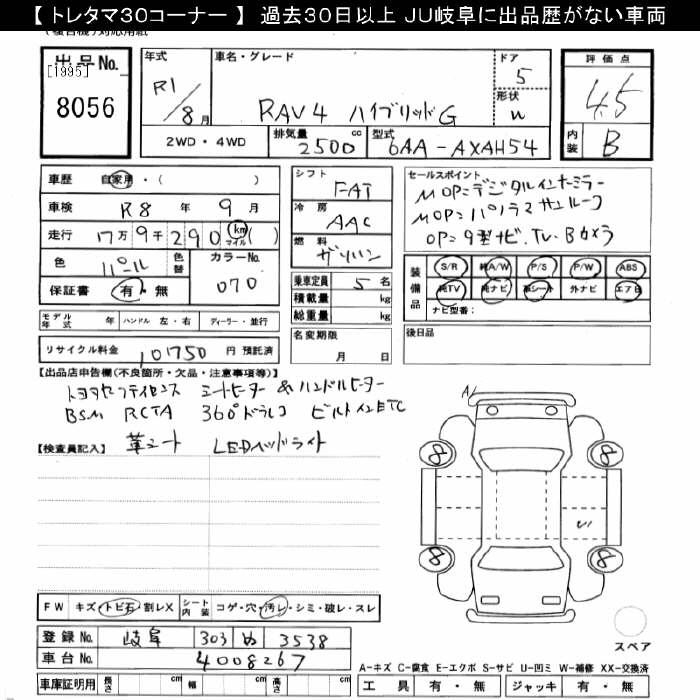 【 トレタマ30コーナー 】 過去30日以上 JU岐阜に出品歴がない車両
出品No.
[1995]
8056
年式
R1/8月
車名・グレード
RAV4 ハイブリッドG
ドア
5
形状
W
評価点
4.5
内装
B
2WD・4WD
排気量
2500 cc
型式
6AA-AXAH54
車歴 自家用・( )
車検 R8 年 9 月
走行 17万9千290 km マイル ( )
色 パール 色替 カラーNo. 070
保証書 有・無
シフト
FAT
冷房
AAC
燃料
ガソリン
乗車定員 5 名
積載量 kg
総重量 kg
セールスポイント
MOP=デジタルインナーミラー
MOP=パノラマサンルーフ
OP=9型ナビ.TV.Bカメラ
装備品
S/R 純A/W P/S P/W ABS
純TV 純ナビ 革シート 外ナビ エアB
ナビ型番:
モデル年式 年 ハンドル 左・右 ディーラー・並行
名変期限
月 日
後日品
リサイクル料金 101750 円 預託済
【出品店申告欄(不良箇所・欠品・注意事項等)】
トヨタセーフティセンス シートヒーター & ハンドルヒーター
BSM RCTA 360°ドラレコ ビルトインETC
革シート LEDヘッドライト
【検査員記入】
A1
8
8
8
8
FW キズ・トビ石・割レX シート内装 コゲ・穴・汚レ・シミ・破レ・スレ
スペア
登録No. 岐阜 303 ぬ 3538
車台No. 4008267
A-キズ C-腐食 E-エクボ S-サビ U-凹ミ W-補修 XX-交換済
車庫証明用 長さ cm 幅 cm 高さ cm
工具 有・無 ジャッキ 有・無